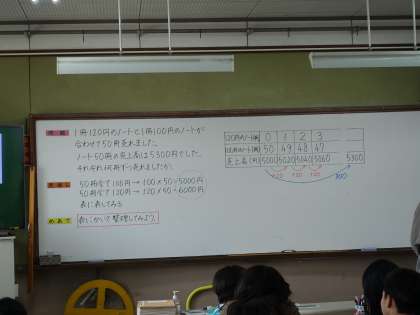 問題
1冊120円のノートと1冊100円のノートが
合わせて50冊売れました。
ノート50冊の売上高は5300円でした。
それぞれ何冊ずつ売れましたか。
50冊全て100円→100×50=5000円
50冊全て120円→120×50=6000円
表にしてみる
めあて 表にかいて整理してみよう。
120円のノート(冊) 0 1 2 3
100円のノート(冊) 50 49 48 47
売上高(円) 5000 5020 5040 5060 5300
+20 +20 +20 300